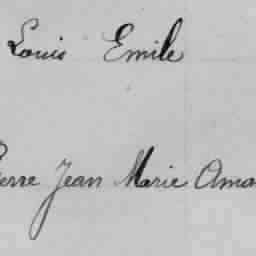 Louis Emile
Pierre Jean Marie